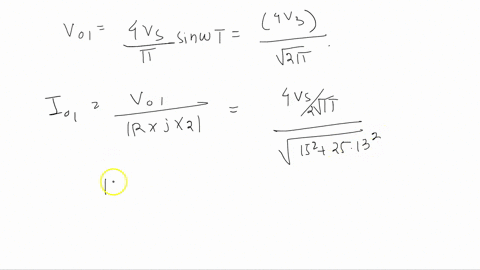 V01 = 4Vs/π sinωT = (4Vs)/√2π.
I01 = V01/|R×j×2| = 4Vs/2√π / √15²+25.13²